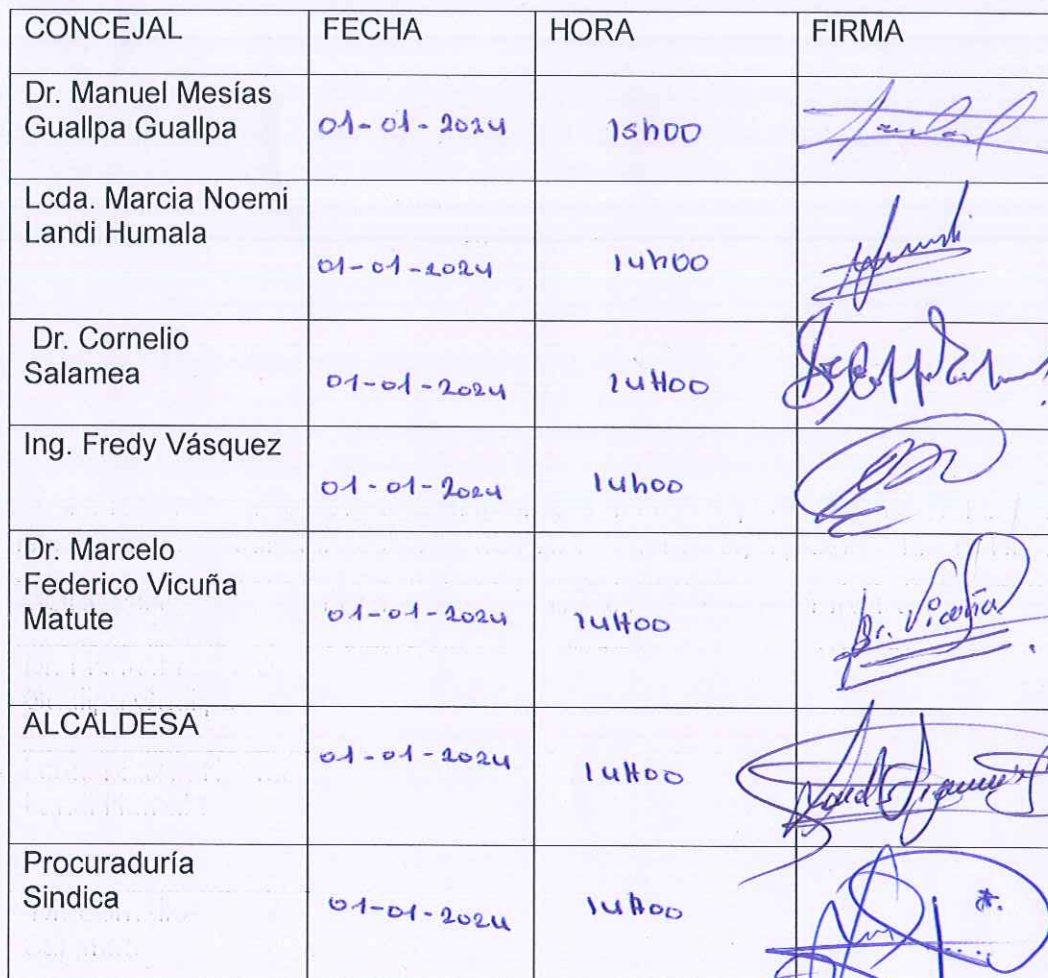 CONCEJAL FECHA HORA FIRMA
Dr. Manuel Mesías
Guallpa Guallpa 01-01-2024 15h00
Lcda. Marcia Noemi
Landi Humala
01-01-2024 14h00
Dr. Cornelio
Salamea 01-01-2024 14H00
Ing. Fredy Vásquez
01-01-2024 14h00
Dr. Marcelo
Federico Vicuña
Matute 01-01-2024 14H00 Dr. Vicuña
ALCALDESA
01-01-2024 14H00
Procuraduría
Sindica 01-01-2024 14H00